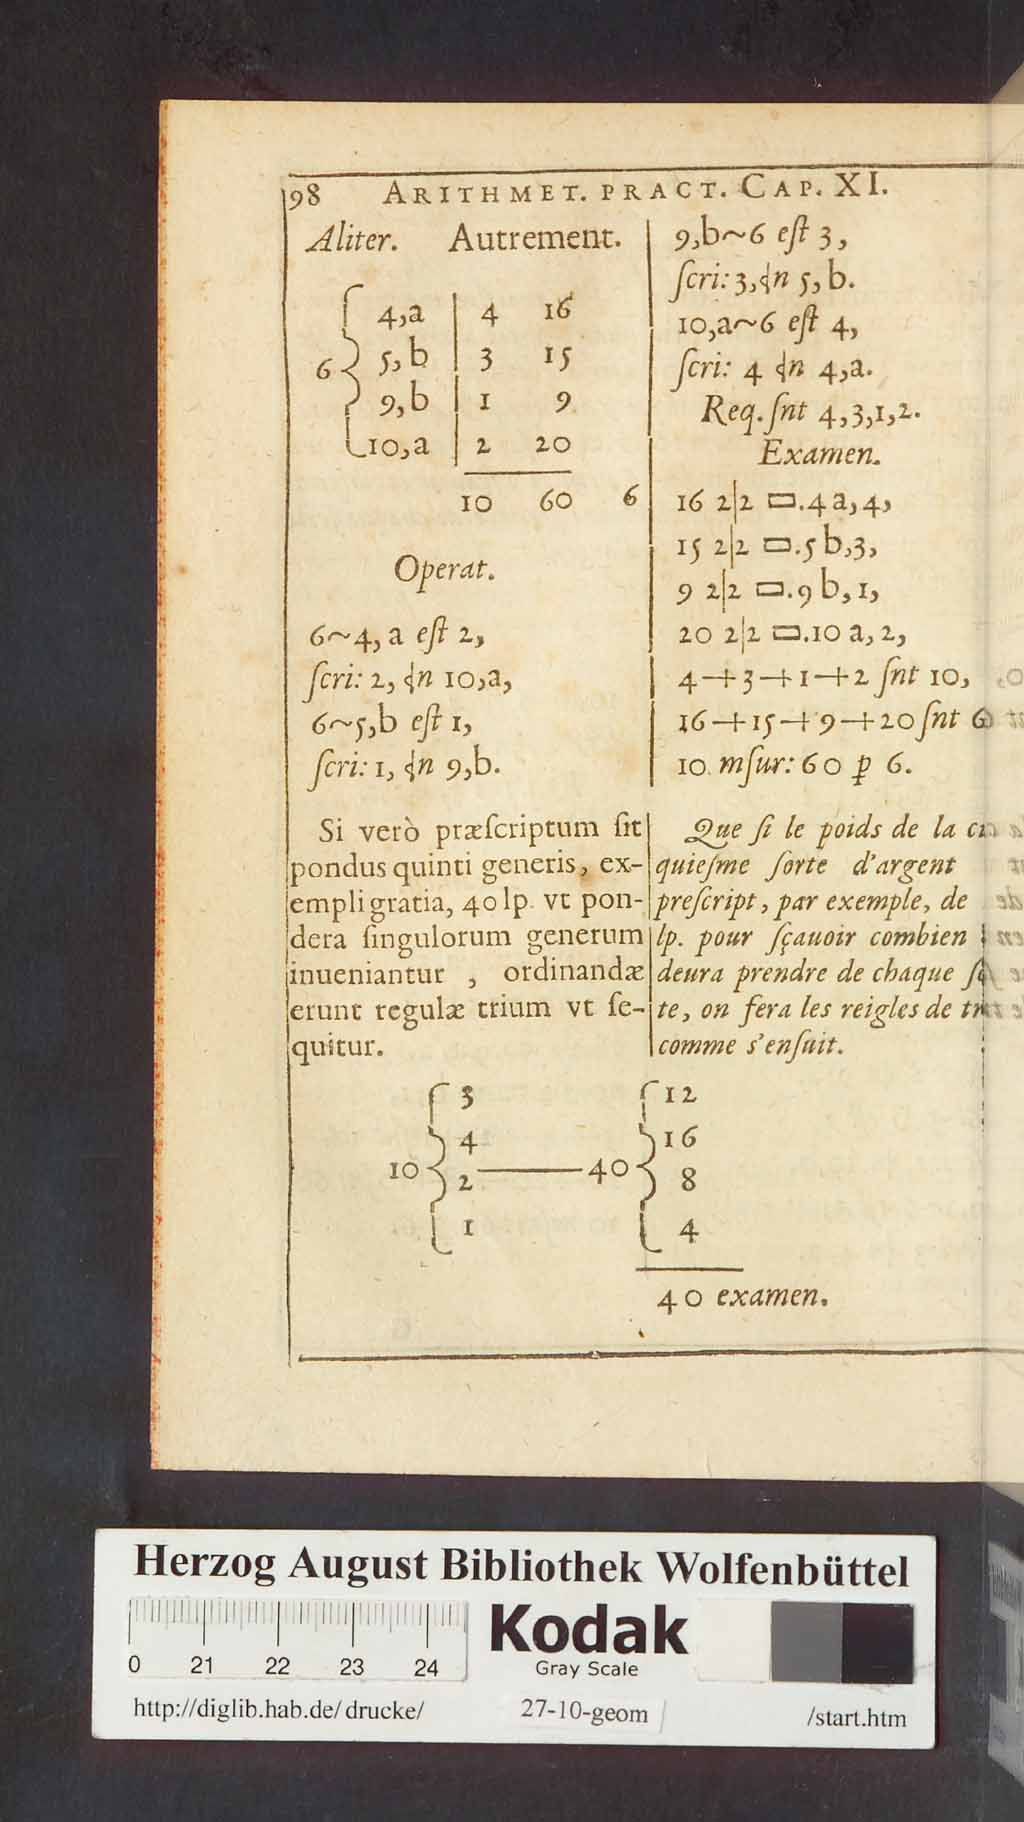 98 ARITHMET. PRACT. CAP. XI.
Aliter. Autrement.
4,a | 4 16
6 5,b | 3 15
9,b | 1 9
10,a | 2 20
10 60 6
Operat.
6~4, a eſt 2,
ſcri: 2, n 10,a,
6~5,b eſt 1,
ſcri: 1, n 9,b.
9,b~6 eſt 3,
ſcri: 3, n 5, b.
10,a~6 eſt 4,
ſcri: 4 n 4,a.
Req. ſnt 4,3,1,2.
Examen.
16 2|2 ▭.4 a, 4,
15 2|2 ▭.5 b,3,
9 2|2 ▭.9 b, 1,
20 2|2 ▭.10 a, 2,
4+3+1+2 ſnt 10,
16+15+9+20 ſnt 6
10 mſur: 60 ꝑ 6.
Si verò præſcriptum ſit
pondus quinti generis, ex-
empli gratia, 40 lp. vt pon-
dera ſingulorum generum
inueniantur , ordinandæ
erunt regulæ trium vt ſe-
quitur.
Que ſi le poids de la
quieſme ſorte d'argent
preſcript, par exemple, de
lp. pour ſçauoir combien
deura prendre de chaque
te, on fera les reigles de
comme s'enſuit.
3 12
4 16
10 2 —— 40 8
1 4
40 examen.
Herzog August Bibliothek Wolfenbüttel
Kodak
Gray Scale
0 21 22 23 24
http://diglib.hab.de/drucke/ 27-10-geom /start.htm